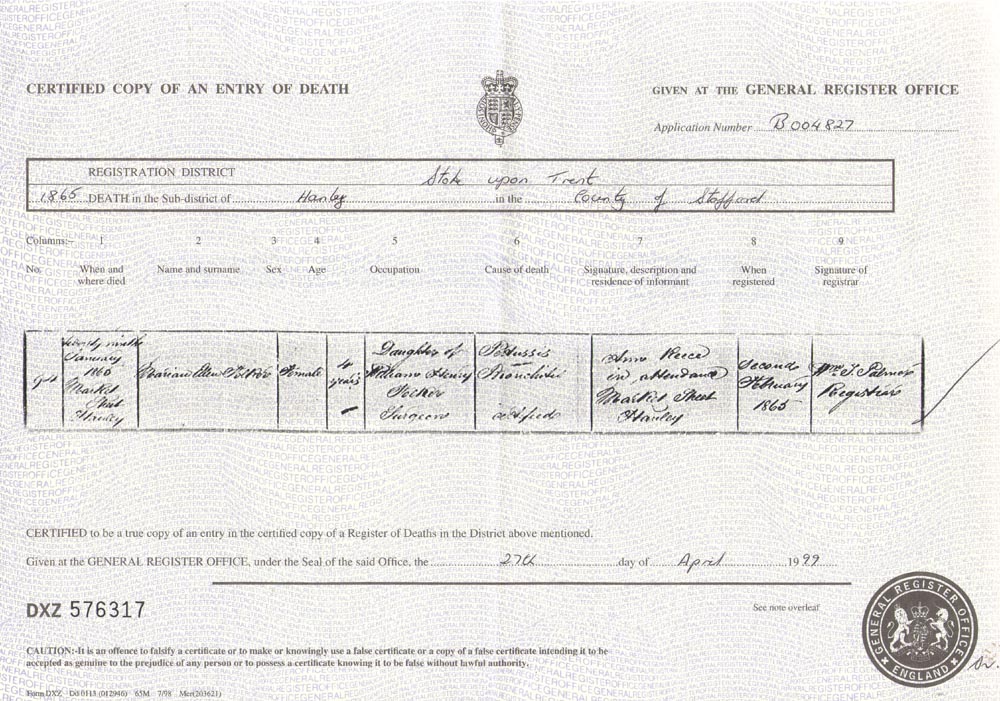 CERTIFIED COPY OF AN ENTRY OF DEATH
GIVEN AT THE GENERAL REGISTER OFFICE
Application Number B004827
REGISTRATION DISTRICT Stoke upon Trent
1865 DEATH in the Sub-district of Hanley in the County of Stafford
Columns:- 1 2 3 4 5 6 7 8 9
No. When and where died Name and surname Sex Age Occupation Cause of death Signature, description and residence of informant When registered Signature of registrar
Twenty ninth January 1865 Market Street Hanley
Ellen
Female
4 years
Daughter of William Henry Surgeon
Pertussis Bronchitis certified
Ann Reece in attendance Market Street Hanley
Second February 1865
Registrar
CERTIFIED to be a true copy of an entry in the certified copy of a Register of Deaths in the District above mentioned.
Given at the GENERAL REGISTER OFFICE, under the Seal of the said Office, the 27th day of April 1999
DXZ 576317
See note overleaf
CAUTION:-It is an offence to falsify a certificate or to make or knowingly use a false certificate or a copy of a false certificate intending it to be
accepted as genuine to the prejudice of any person or to possess a certificate knowing it to be false without lawful authority.
Form DXZ Dd 0113 (012946) 65M 7/98 Mcr(203621)
GENERAL REGISTER OFFICE
ENGLAND